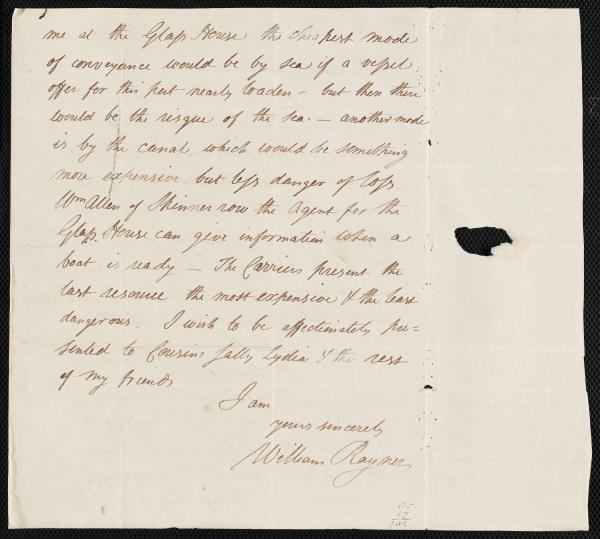 me at the Glass House the cheapest mode
of conveyance would be by sea if a vessel
offer for this port nearly loaden - but then there
would be the risque of the sea. - another mode
is by the canal which would be something
more expensive but less danger of loss
Wm Allen of Skinner row the Agent for the
Glass House can give information when a
boat is ready - The Carriers present the
last resource the most expensive & the least
dangerous. I wish to be affectionately pre=
sented to Cousins Sally Lydia & the rest
of my friends
I am
yours sincerely
William Rayner